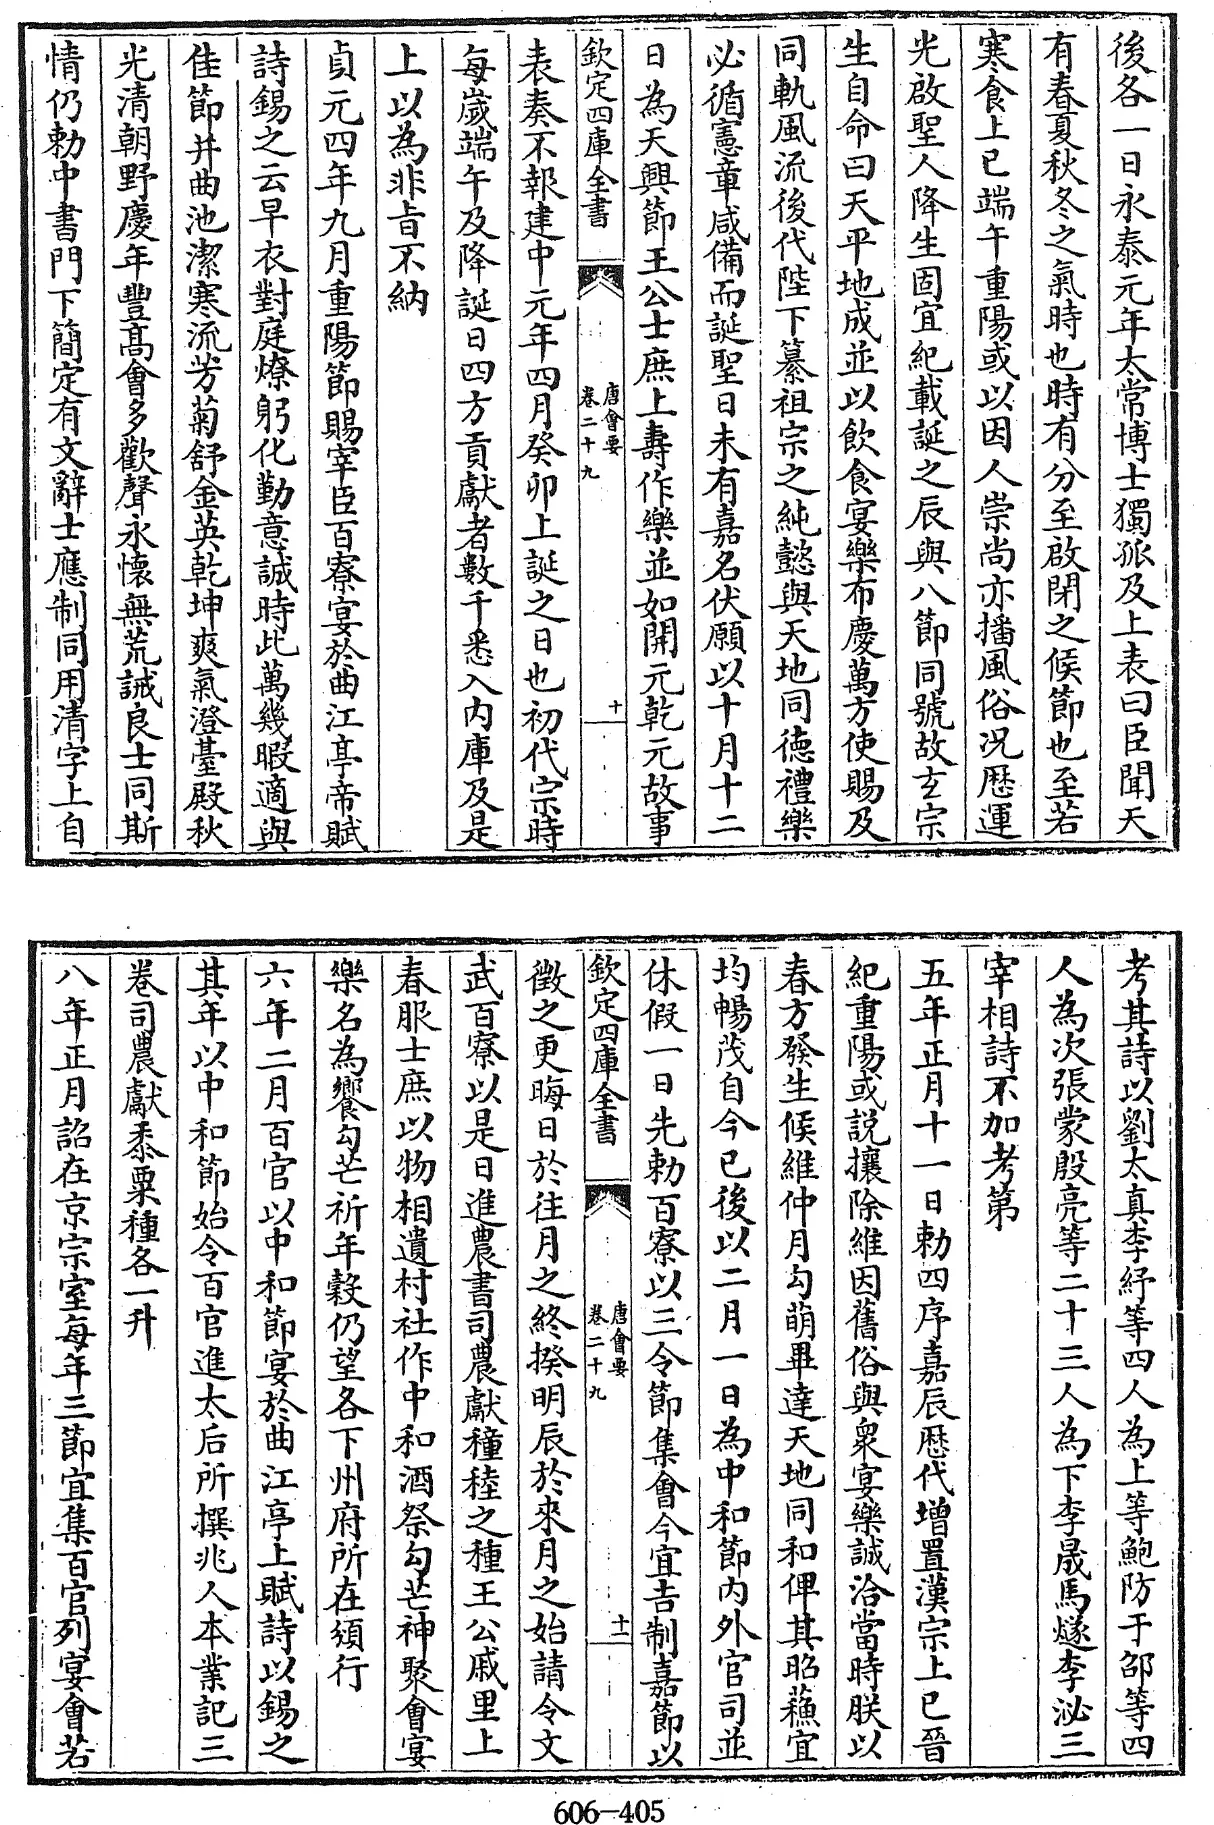 後各一日永泰元年太常博士獨孤及上表曰臣聞天
有春夏秋冬之氣時也時有分至啟閉之候節也至若
寒食上巳端午重陽或以因人崇尚亦播風俗況歴運
光啟聖人降生固宜紀載誕之辰與八節同號故玄宗
生自命曰天平地成並以飲食宴樂布慶萬方使賜及
同軌風流後代陛下纂祖宗之純懿與天地同德禮樂
必循憲章咸備而誕聖日未有嘉名伏願以十月十二
日為天興節王公士庶上壽作樂並如開元乾元故事
欽定四庫全書
唐會要
卷二十九
十
表奏不報建中元年四月癸卯上誕之日也初代宗時
每歲端午及降誕日四方貢獻者數千悉入內庫及是
上以為非㫖不納
貞元四年九月重陽節賜宰臣百寮宴於曲江亭帝賦
詩錫之云早衣對庭燎躬化勤意誠時此萬幾暇適與
佳節并曲池潔寒流芳菊舒金英乾坤爽氣澄臺殿秋
光清朝野慶年豐髙會多歡聲永懷無荒誡良士同斯
情仍勅中書門下簡定有文辭士應制同用清字上自
考其詩以劉太真李紓等四人為上等鮑防于邵等四
人為次張蒙殷亮等二十三人為下李晟馬燧李泌三
宰相詩不加考第
五年正月十一日勅四序嘉辰歴代增置漢宗上巳晉
紀重陽或說攘除維因舊俗與衆宴樂誠洽當時朕以
春方發生候維仲月勾萌畢達天地同和俾其昭蘓宜
均暢茂自今已後以二月一日為中和節內外官司並
休假一日先勅百寮以三令節集會今宜吉制嘉節以
欽定四庫全書
唐會要
卷二十九
十一
徵之更晦日於往月之終揆明辰於來月之始請令文
武百寮以是日進農書司農獻穜稑之種王公戚里上
春服士庶以物相遺村社作中和酒祭勾芒神聚會宴
樂名為饗勾芒祈年穀仍望各下州府所在頒行
六年二月百官以中和節宴於曲江亭上賦詩以錫之
其年以中和節始令百官進太后所撰兆人本業記三
卷司農獻黍粟種各一升
八年正月詔在京宗室每年三節宜集百官列宴會若
606-405